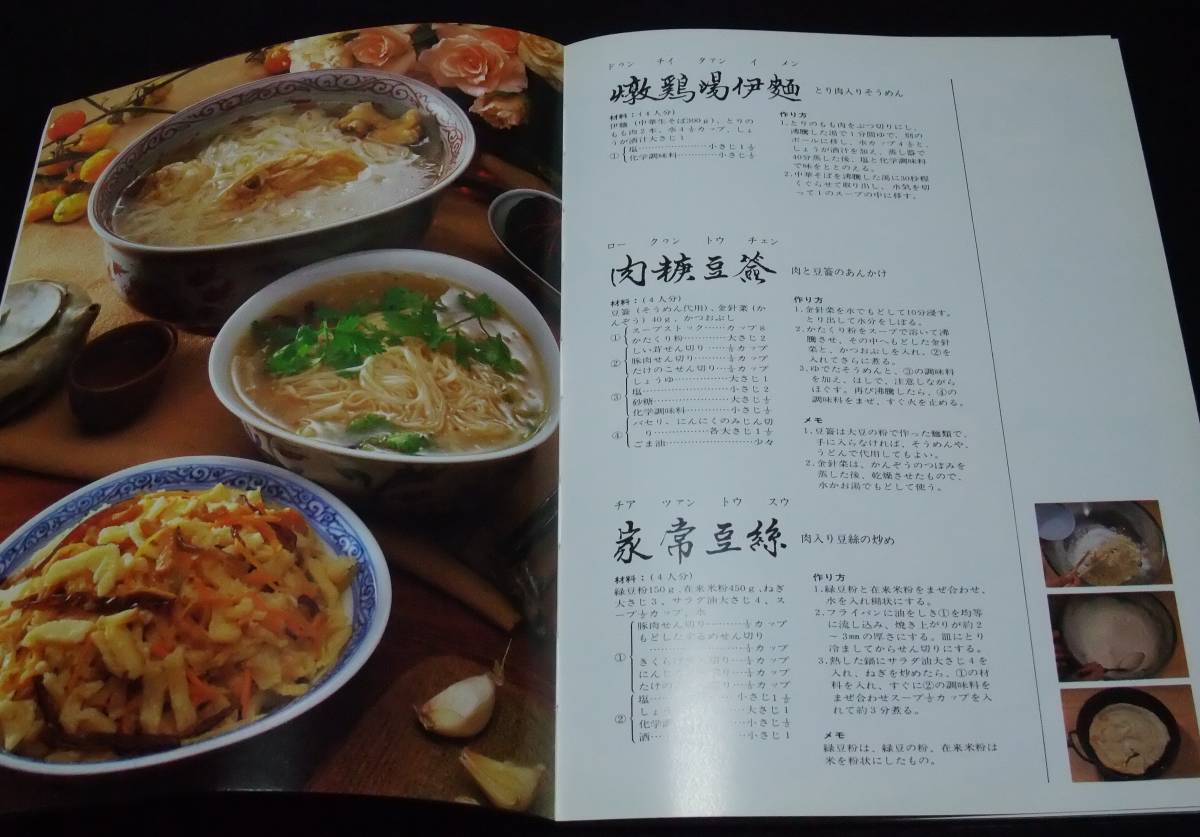 ドゥン チイ タァン イ メン
燉鶏湯伊麺 とり肉入りそうめん
材料：(4人分)
伊麺（中華生そば300g)、とりの
もも肉2本、水4½カップ、しょ
うが酒汁大さじ1
① 塩……小さじ1½
化学調味料……小さじ½
作り方
1.とりのもも肉をぶつ切りにし、
沸騰した湯で1分間ゆで、別の
ボールに移し、水カップ4½と、
しょうが酒汁を加え、蒸し器で
40分蒸した後、塩と化学調味料
で味をととのえる。
2.中華そばを沸騰した湯に30秒程
くぐらせて取り出し、水気を切
って1のスープの中に移す。
ロー クゥン トウ チェン
肉焿豆簽 肉と豆簽のあんかけ
材料：(4人分)
豆簽（そうめん代用)、金針菜（か
んぞう）40g、かつおぶし
① スープストック……カップ8
かたくり粉……大さじ2
② しい茸せん切り……½カップ
豚肉せん切り……½カップ
たけのこせん切り…½カップ
③ しょうゆ……大さじ1
塩……小さじ2
砂糖……大さじ½
化学調味料……小さじ½
④ パセリ、にんにくのみじん切
り……各大さじ1½
ごま油……少々
作り方
1.金針菜を水でもどして10分浸す。
とり出して水分をしぼる。
2.かたくり粉をスープで溶いて沸
騰させ、その中へもどした金針
菜と、かつおぶしを入れ、②を
入れてさらに煮る。
3.ゆでたそうめんと、③の調味料
を加え、はしで、注意しながら
ほぐす。再び沸騰したら、④の
調味料をまぜ、すぐ火を止める。
メモ
1.豆簽は大豆の粉で作った麺類で、
手に入らなければ、そうめんや、
うどんで代用してもよい。
2.金針菜は、かんぞうのつぼみを
蒸した後、乾燥させたもので、
水かお湯でもどして使う。
チア ツァン トウ スウ
家常豆絲 肉入り豆絲の炒め
材料：(4人分)
緑豆粉150g、在来米粉450g、ねぎ
大さじ3、サラダ油大さじ4、ス
ープ½カップ、水
① 豚肉せん切り……½カップ
もどしたするめせん切り
……½カップ
きくらげせん切り…½カップ
にんじん切り…½カップ
たけの切り…½カップ
② 塩……小さじ1½
しょ……大さじ1
化学調……小さじ½
酒……小さじ1
作り方
1.緑豆粉と在来米粉をまぜ合わせ、
水を入れ糊状にする。
2.フライパンに油をしき①を均等
に流し込み、焼き上がりが約2
～3㎜の厚さにする。皿にとり
冷ましてからせん切りにする。
3.熱した鍋にサラダ油大さじ4を
入れ、ねぎを炒めたら、①の材
料を入れ、すぐに②の調味料を
まぜ合わせスープ½カップを入
れて約3分煮る。
メモ
緑豆粉は、緑豆の粉、在来米粉は
米を粉状にしたもの。